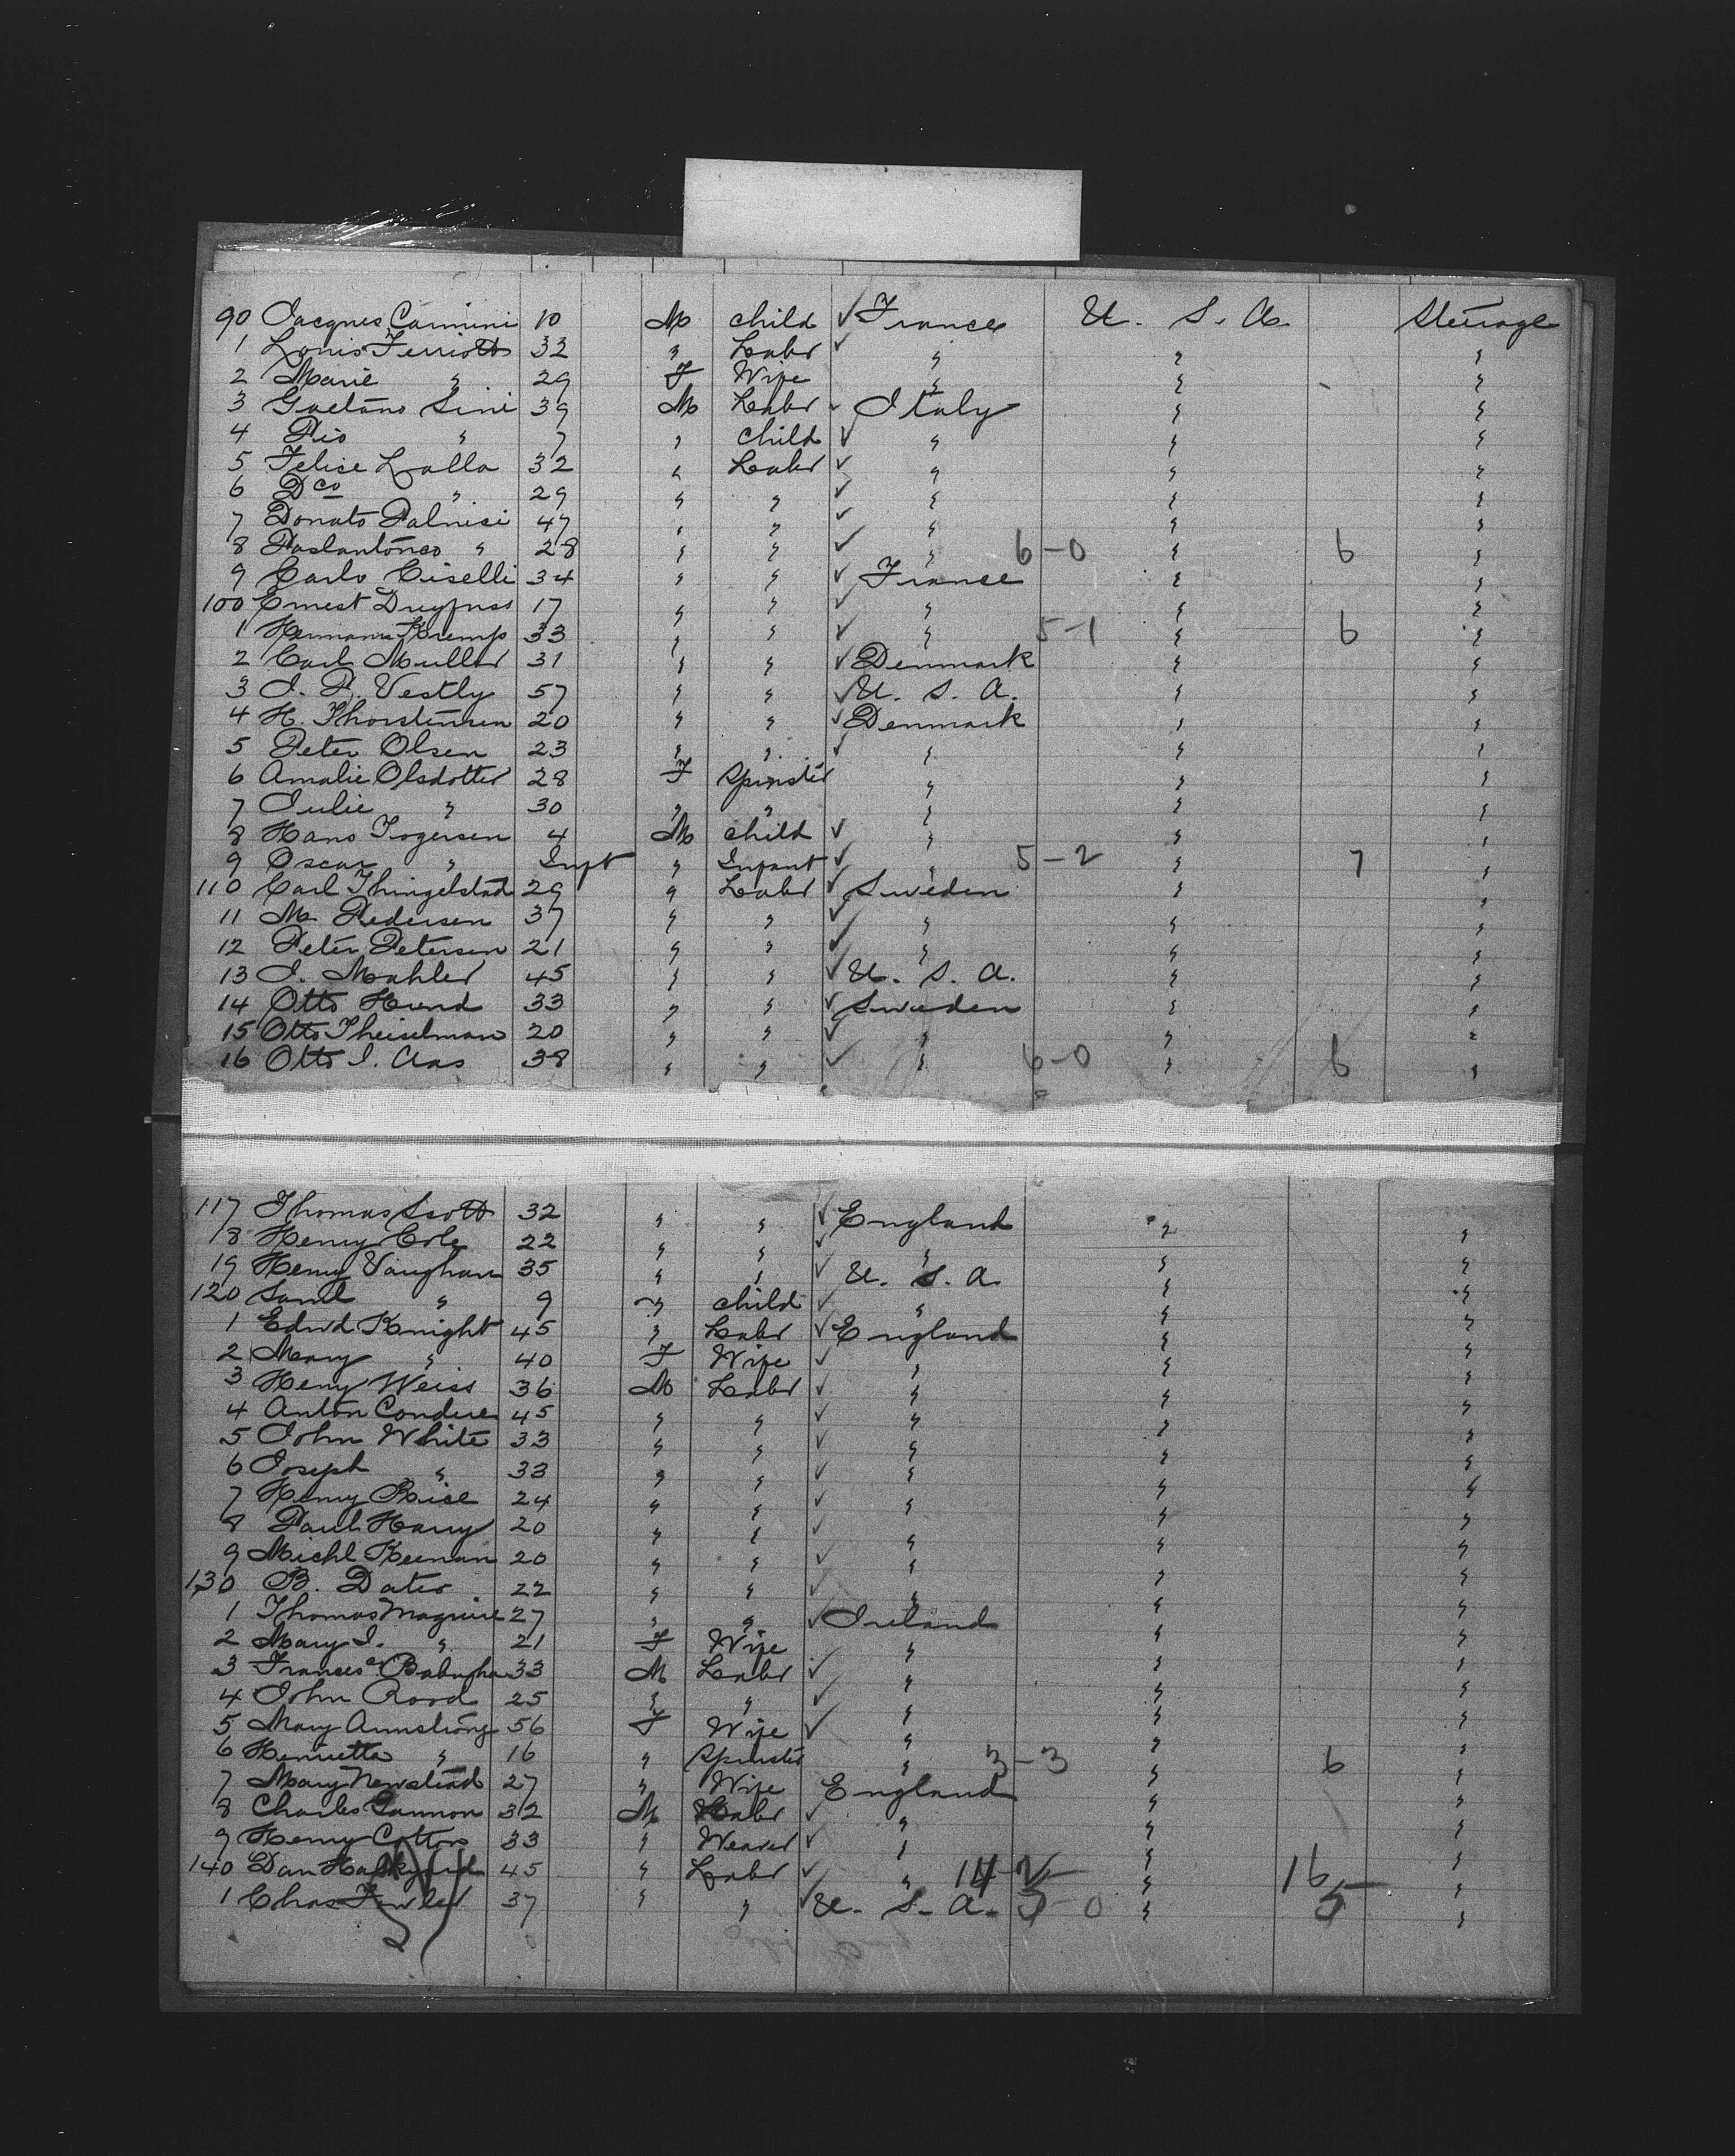 90 Jacques Camini 10 M child ✓ France U. S. A. Steerage
1 Louis Ferriott 32 " Labr ✓ " " "
2 Marie " 29 F Wife " " "
3 Gaetano Sini 39 M Labr ✓ Italy " "
4 Pio " 7 " child ✓ " " "
5 Felice Lalla 32 " Labr ✓ " " "
6 Dco " 29 " " ✓ " " "
7 Donato Palnisi 47 " " ✓ " " "
8 " 28 " " ✓ " 6-0 " 6 "
9 Carlo Ciselli 34 " " ✓ France " "
100 Ernest Dreyfuss 17 " " ✓ " " "
1 Hermann Kremp 33 " " ✓ " 5-1 " 6 "
2 Carl Muller 31 " " ✓ Denmark " "
3 J. P. Vestly 57 " " ✓ U. S. A. " "
4 H. Thorstensen 20 " " ✓ Denmark " "
5 Peter Olsen 23 " " ✓ " " "
6 Amalie Olsdotter 28 F Spinster " " "
7 Julie " 30 " " " " "
8 Hans Togersen 4 M child ✓ " " "
9 Oscar " Inft " Infant ✓ " 5-2 " 7 "
110 Carl Thingelstad 29 " Labr ✓ Sweden " "
11 M. Pedersen 37 " " ✓ " " "
12 Peter Petersen 21 " " ✓ " " "
13 J. Mahler 45 " " ✓ U. S. A. " "
14 Otto Hund 33 " " ✓ Sweden " "
15 Otto Theiselman 20 " " ✓ " " "
16 Otto I. Aas 38 " " ✓ " 6-0 " 6 "
117 Thomas Scott 32 " " ✓ England " "
18 Henry Cole 22 " " ✓ " " "
19 Henry Vaughan 35 " " ✓ U. S. A " "
120 Saml " 9 " child ✓ " " "
1 Edwd Knight 45 " Labr ✓ England " "
2 Mary " 40 F Wife ✓ " " "
3 Heny Weiss 36 M Labr ✓ " " "
4 Anton Condure 45 " " ✓ " " "
5 John White 33 " " ✓ " " "
6 Joseph " 33 " " ✓ " " "
7 Henry Rice 24 " " ✓ " " "
8 Paul Harry 20 " " ✓ " " "
9 Michl Keenan 20 " " ✓ " " "
130 B. Dates 22 " " ✓ " " "
1 Thomas Maguire 27 " " ✓ Ireland " "
2 Mary J. " 21 F Wife " " "
3 Frances 33 M Labr ✓ " " "
4 John Rood 25 " " ✓ " " "
5 Mary Armstrong 56 F Wife ✓ " " "
6 Henrietta " 16 " Spinster " 3-3 " 6 "
7 Mary Newstead 27 " Wife England " "
8 Charles Gannon 32 M Labr ✓ " " "
9 Henry Cotton 33 " Weaver ✓ " " "
140 Dan 45 " Labr ✓ " 14-2 " 16 "
1 Chas Fowler 37 " " ✓ U. S. A. 5-0 " 5 "